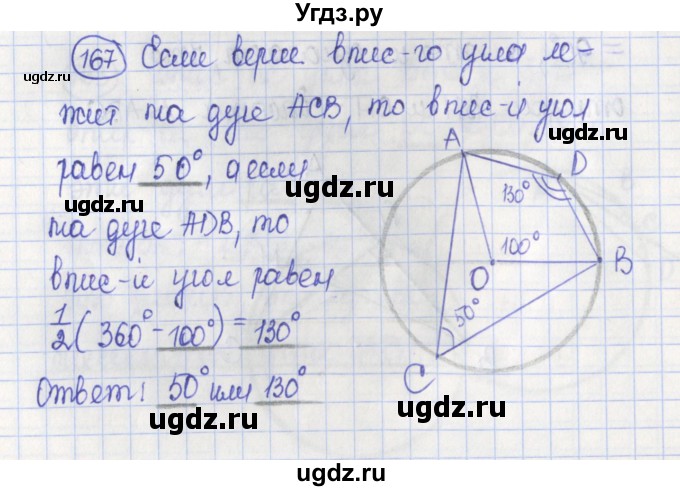 Угдз.ру
167 Если верш. впис-го угла ле-
жит на дуге ACB, то впис-й угол
равен 50°, а если
на дуге ADB, то
впис-й угол равен
1/2(360° - 100°) = 130°
Ответ: 50° или 130°
A
D
130°
100°
O
B
50°
C
ugdz.ru
ugdz.ru
ugdz.ru
ugdz.ru
ugdz.ru
ugdz.ru
ugdz.ru
ugdz.ru
ugdz.ru
ugdz.ru
ugdz.ru